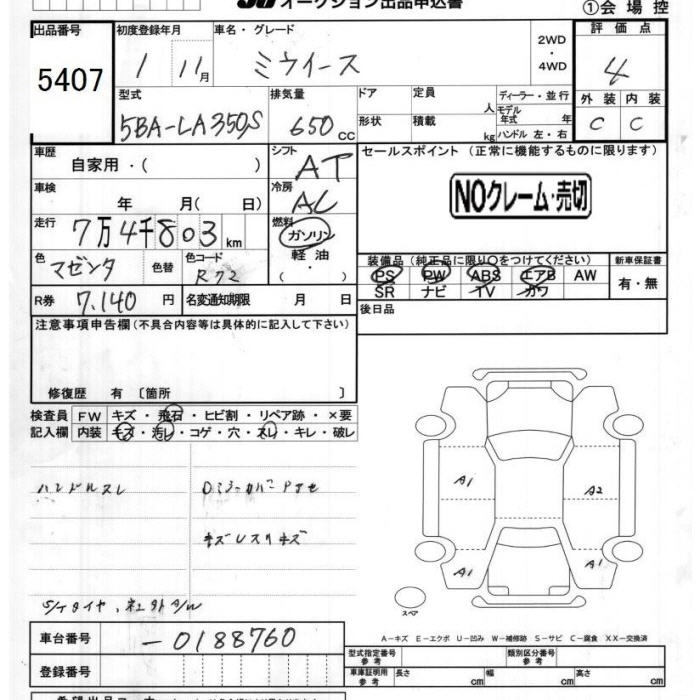 オークション出品申込書
①会場控
出品番号 初度登録年月 車名・グレード 2WD・4WD 評価点
5407 1 11月 ミライース 4
型式 排気量 ドア 定員 人 ディーラー・並行 外装 内装
5BA-LA350S 650 cc 形状 積載 kg モデル年式 年 C C
ハンドル 左・右
車歴 自家用・( ) シフト AT セールスポイント (正常に機能するものに限ります)
車検 年 月( 日) 冷房 AC NOクレーム・売切
走行 7万4千803 km 燃料 ガソリン・軽油・
色 マゼンタ 色替 色コード R72
装備品(純正品に限り○をつけてください) 新車保証書
PS PW ABS エアB AW 有・無
SR ナビ TV カワ
R券 7,140 円 名変通知期限 月 日 後日品
注意事項申告欄(不具合内容等は具体的に記入して下さい)
修復歴 有〔箇所 〕
検査員 FW キズ・飛石・ヒビ割・リペア跡・×要
記入欄 内装 キズ・汚レ・コゲ・穴・スレ・キレ・破レ
ハンドルスレ
キズ レスリキズ
S/タイヤ、社外A/W
A1 A2
A1 A1
スペア
A-キズ E-エクボ U-凹み W-補修跡 S-サビ C-腐食 XX-交換済
車台番号 -0188760
登録番号
型式指定番号 参考 類別区分番号 参考
車庫証明用 参考 長さ cm 幅 cm 高さ cm